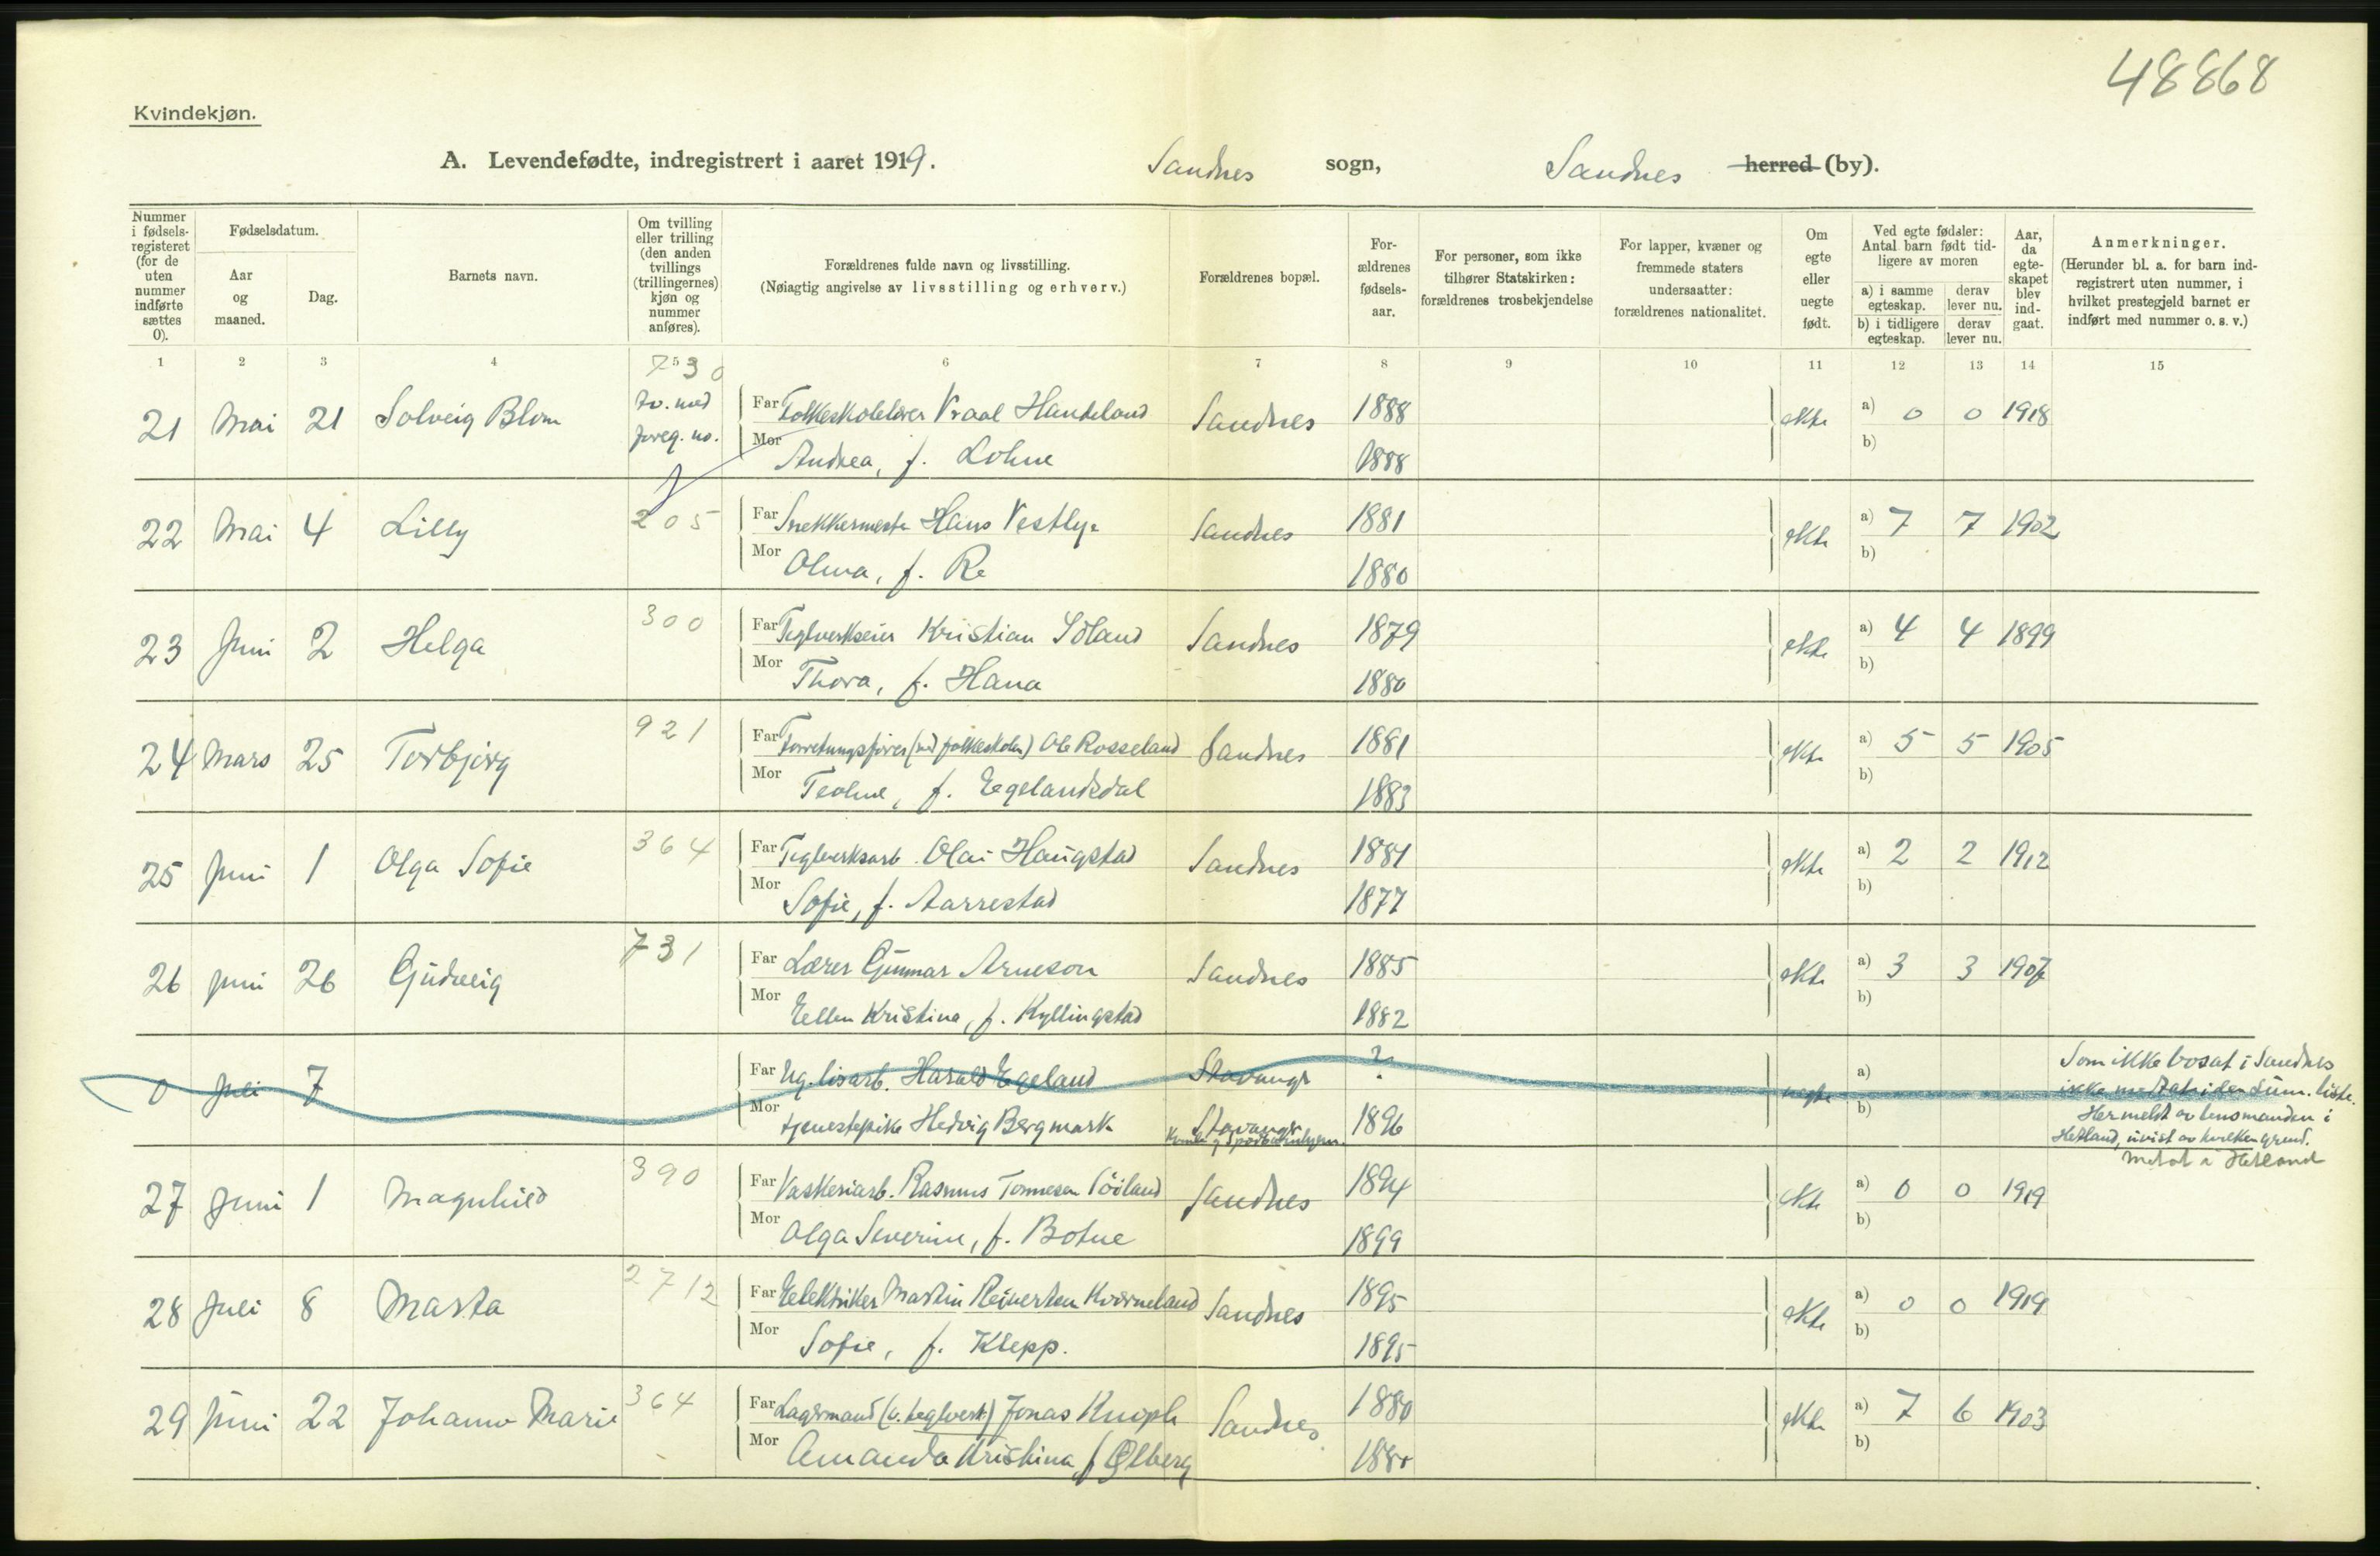 48868
Kvindekjøn.
A. Levendefødte, indregistrert i aaret 1919. Sandnes sogn, Sandnes herred (by).
Nummer i fødselsregisteret (for de uten nummer indførte sættes 0).
Fødselsdatum.
Aar og maaned.
Dag.
Barnets navn.
Om tvilling eller trilling (den anden tvillings (trillingernes) kjøn og nummer anføres).
Forældrenes fulde navn og livsstilling.
(Nøiagtig angivelse av livsstilling og erhverv.)
Forældrenes bopæl.
Forældrenes fødselsaar.
For personer, som ikke tilhører Statskirken: forældrenes trosbekjendelse
For lapper, kvæner og fremmede staters undersaatter: forældrenes nationalitet.
Om egte eller uegte født.
Ved egte fødsler: Antal barn født tidligere av moren
a) i samme egteskap. derav lever nu.
b) i tidligere egteskap. derav lever nu.
Aar, da egteskapet blev indgaat.
Anmerkninger.
(Herunder bl. a. for barn indregistrert uten nummer, i hvilket prestegjeld barnet er indført med nummer o. s. v.)
1 2 3 4 5 6 7 8 9 10 11 12 13 14 15
730
21 Mai 21 Solveig Blom tv. med foreg. no. Far Folkeskolelærer Vraal Handeland Sandnes 1888 ekte a) 0 0 1918
Mor Andrea, f. Lohne 1888 b)
22 Mai 4 Lilly 205 Far Snekkermester Hans Vestly Sandnes 1881 ekte a) 7 7 1902
Mor Olena, f. Re 1880 b)
23 Juni 2 Helga 300 Far Teglverkseier Kristian Söland Sandnes 1879 ekte a) 4 4 1899
Mor Thora, f. Hana 1880 b)
24 Mars 25 Torbjørg 921 Far Forretningsfører (ved folkeskolen) Ole Rosseland Sandnes 1881 ekte a) 5 5 1905
Mor f. Egelandsdal 1883 b)
25 Juni 1 Olga Sofie 364 Far Teglverksarb. Olai Haugstad Sandnes 1881 ekte a) 2 2 1912
Mor Sofie, f. Aarrestad 1877 b)
26 Juni 26 Gudveig 731 Far Lærer Gunnar Arneson Sandnes 1885 ekte a) 3 3 1907
Mor Ellen Kristine, f. Kyllingstad 1882 b)
0 Juli 7 Far Harald Egeland Stavanger ? uegte a) Som ikke bosat i Sandnes
ikke medtat i den sum. liste.
Mor tjenestepike Hedvig Bergmark Stavanger 1896 b) Her meldt av lensmanden i
Hetland, uvist av hvilken grund.
Medtat i Hetland
27 Juni 1 Magnhild 390 Far Vaskeriarb. Rasmus Tonnesen Sööland Sandnes 1894 ekte a) 0 0 1919
Mor Olga Severine, f. Botne 1899 b)
28 Juli 8 Marta 2712 Far Elektriker Martin Reinertsen Kverneland Sandnes 1895 ekte a) 0 0 1919
Mor Sofie, f. Klepp. 1895 b)
29 Juni 22 Johanne Marie 364 Far Lagermand (v. teglverk) Jonas Knoph Sandnes 1880 ekte a) 7 6 1903
Mor Amanda Kristina f. Ølberg 1880 b)